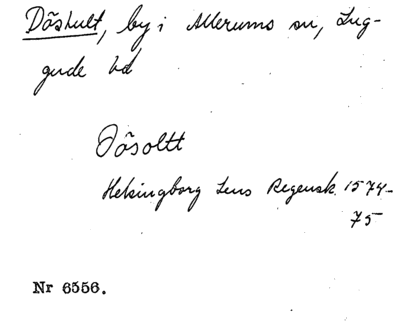 Döshult, by i Allerums sn, Lug-
gude hd
Dösoltt
Helsingborg Lens Regensk. 1574-
75
Nr 6556.